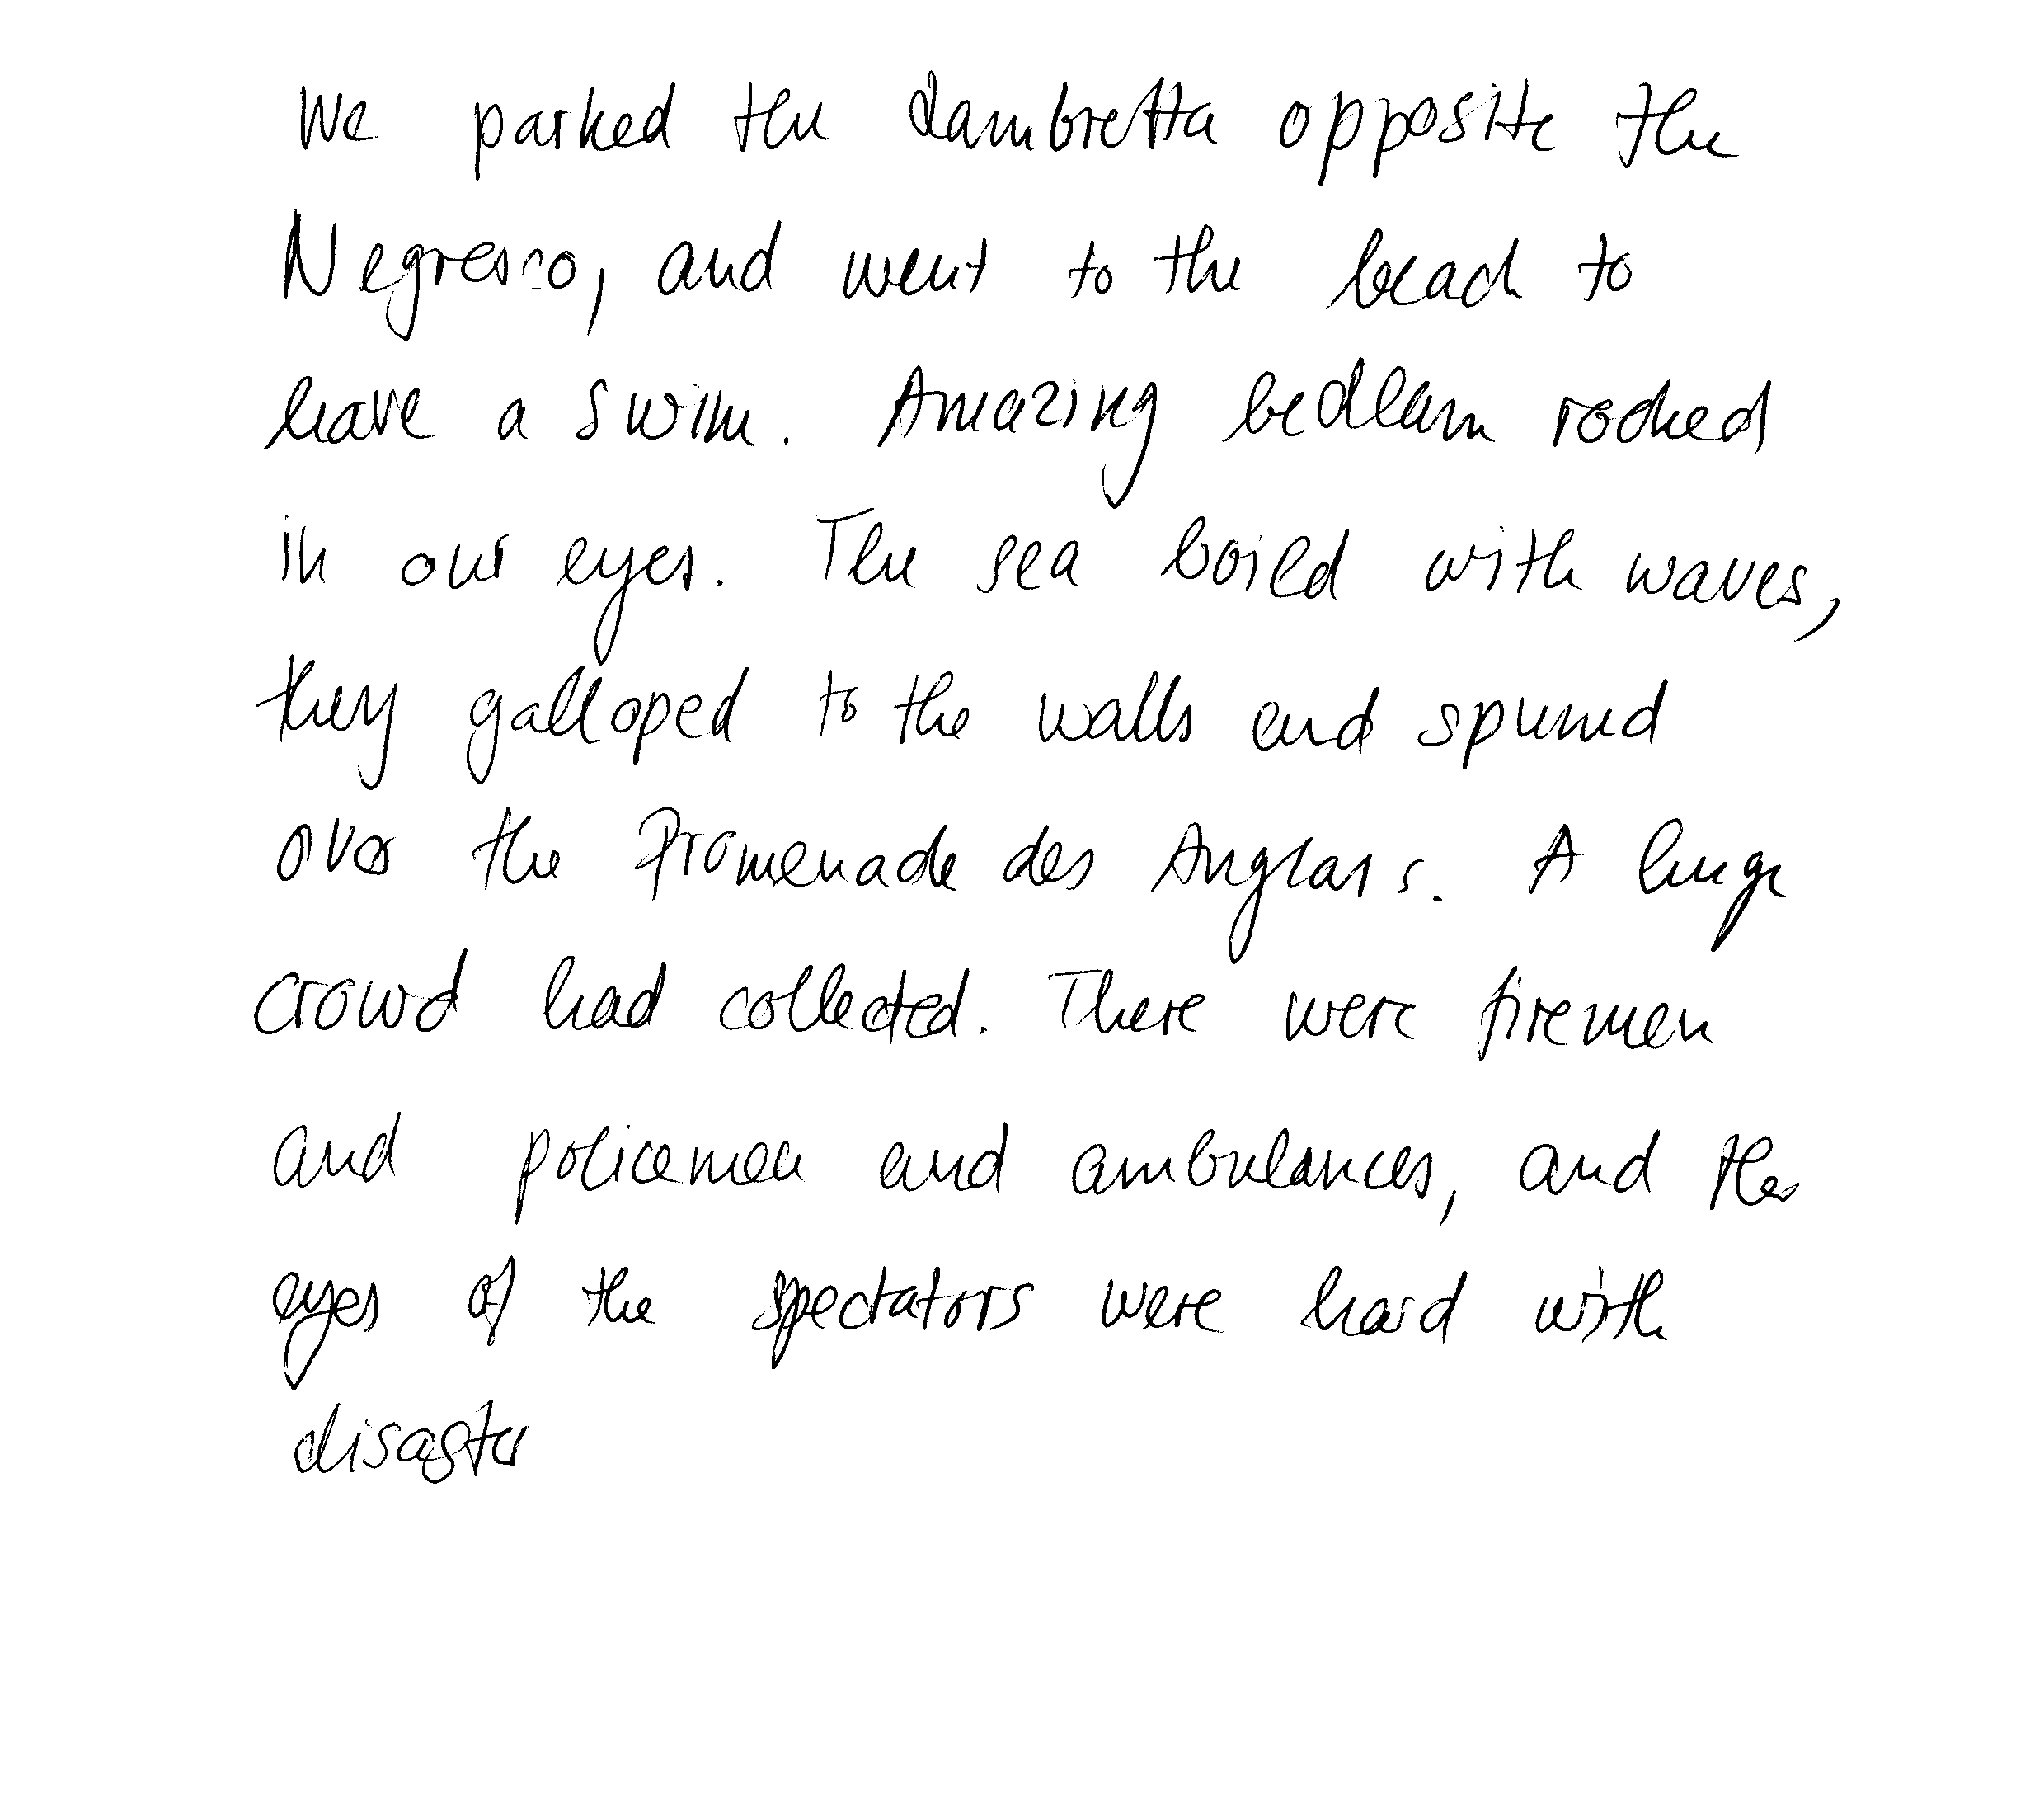 We parked the Lambretta opposite the
Negresco, and went to the beach to
have a swim. Amazing bedlam rocked
in our eyes. The sea boiled with waves,
they galloped to the walls and spumed
over the Promenade des Anglais. A huge
crowd had collected. There were firemen
and policemen and ambulances, and the
eyes of the spectators were hard with
disaster